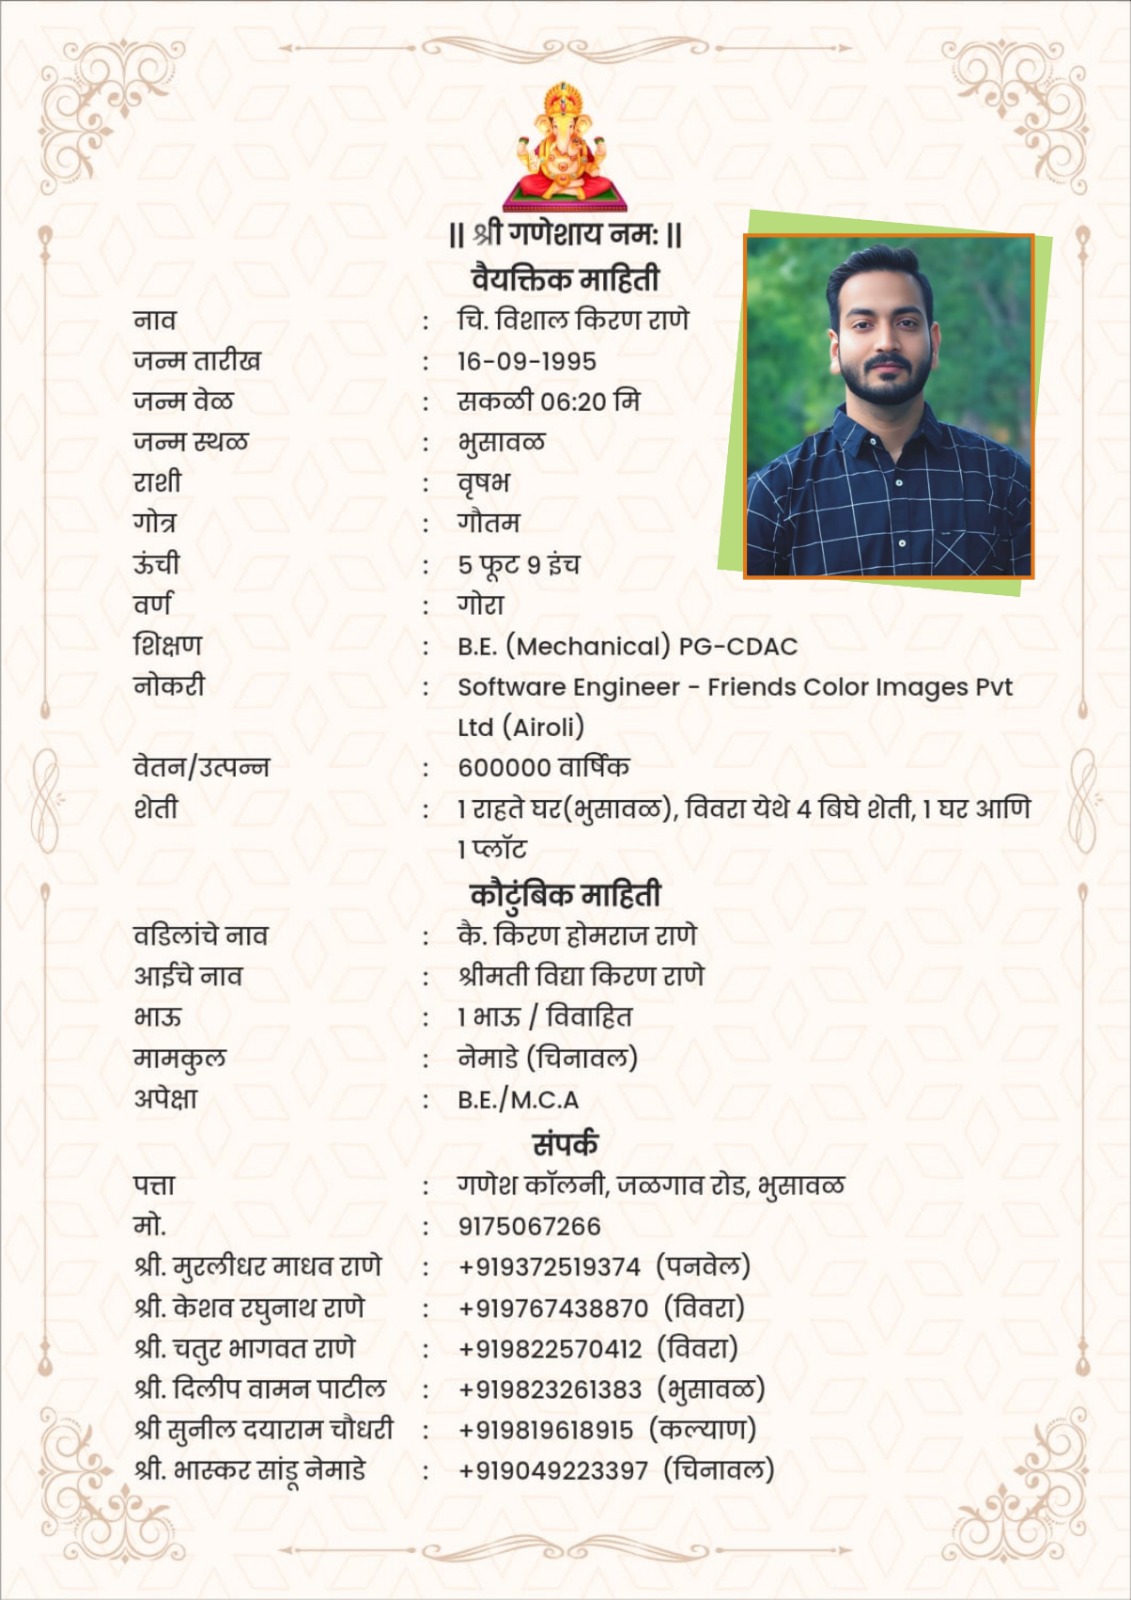 || श्री गणेशाय नमः ||
वैयक्तिक माहिती
नाव : चि. विशाल किरण राणे
जन्म तारीख : 16-09-1995
जन्म वेळ : सकळी 06:20 मि
जन्म स्थळ : भुसावळ
राशी : वृषभ
गोत्र : गौतम
ऊंची : 5 फूट 9 इंच
वर्ण : गोरा
शिक्षण : B.E. (Mechanical) PG-CDAC
नोकरी : Software Engineer - Friends Color Images Pvt
Ltd (Airoli)
वेतन/उत्पन्न : 600000 वार्षिक
शेती : 1 राहते घर(भुसावळ), विवरा येथे 4 बिघे शेती, 1 घर आणि
1 प्लॉट
कौटुंबिक माहिती
वडिलांचे नाव : कै. किरण होमराज राणे
आईचे नाव : श्रीमती विद्या किरण राणे
भाऊ : 1 भाऊ / विवाहित
मामकुल : नेमाडे (चिनावल)
अपेक्षा : B.E./M.C.A
संपर्क
पत्ता : गणेश कॉलनी, जळगाव रोड, भुसावळ
मो. : 9175067266
श्री. मुरलीधर माधव राणे : +919372519374 (पनवेल)
श्री. केशव रघुनाथ राणे : +919767438870 (विवरा)
श्री. चतुर भागवत राणे : +919822570412 (विवरा)
श्री. दिलीप वामन पाटील : +919823261383 (भुसावळ)
श्री सुनील दयाराम चौधरी : +919819618915 (कल्याण)
श्री. भास्कर सांडू नेमाडे : +919049223397 (चिनावल)